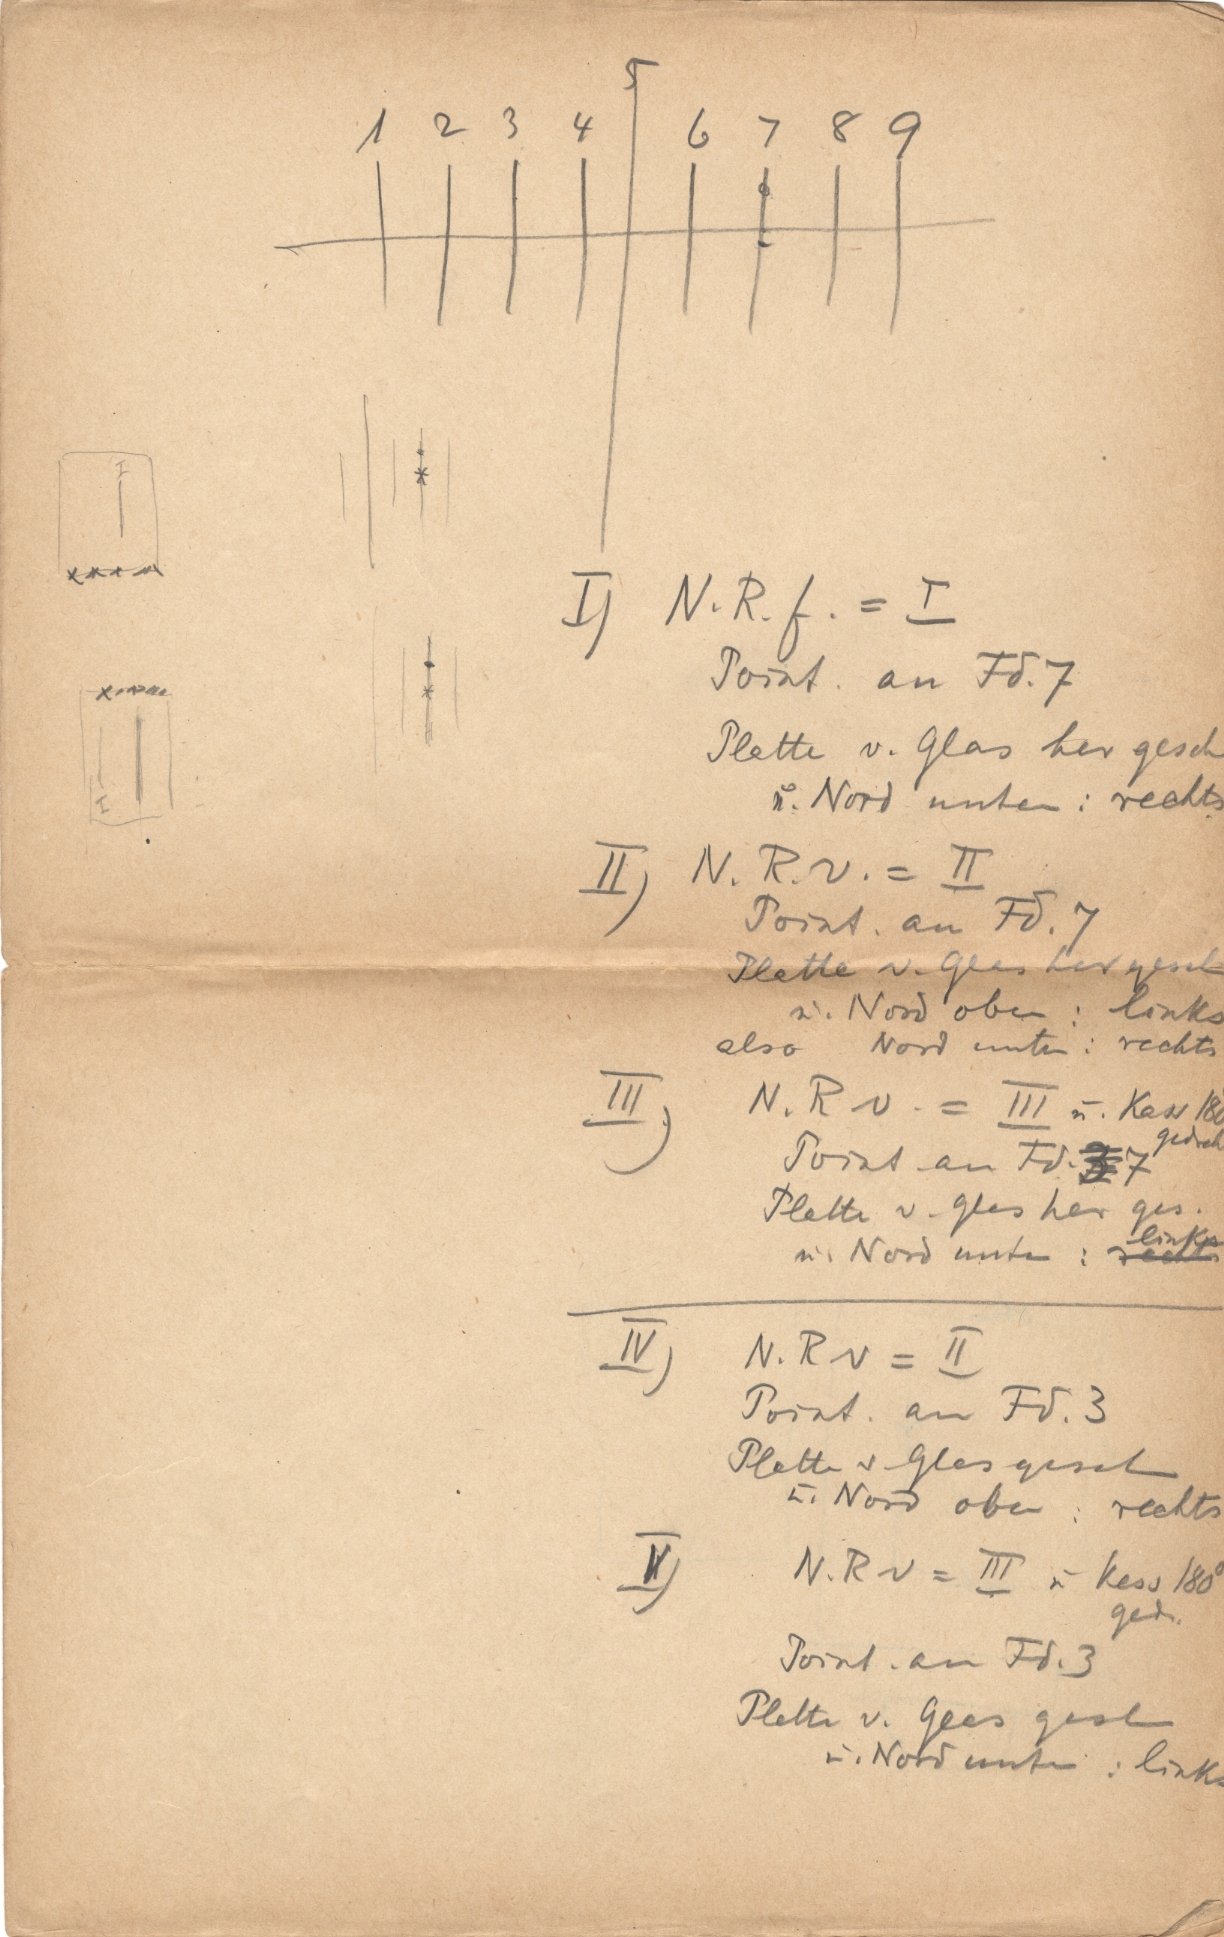 5
1 2 3 4 6 7 8 9
I
I
I) N. R. f. = I
Point. an Fd. 7
Platte v. Glas her gesch
u. Nord unten : rechts
II) N. R. v. = II
Point. an Fd. 7
Platte v. Glas her gesch
u. Nord oben : links
also Nord unten : rechts
III) N. R v. = III u. Kass 180
gedreh
Point an Fd. 7
Platte v. Glas her ges.
links
u. Nord unten : rechts
IV) N. R v = II
Point. an Fd. 3
Platte v Glas gesch
u. Nord oben : rechts
V) N. R v = III u Kass 180°
gedr.
Point. an Fd. 3
Platte v. Glas gesch
u. Nord unten : links